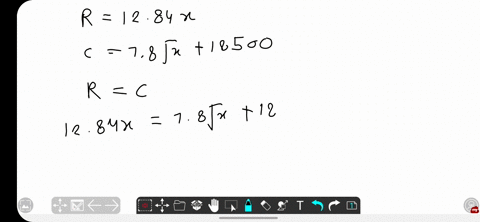 R = 12.84x
C = 7.8√x + 18500
R = C
12.84x = 7.8√x + 12